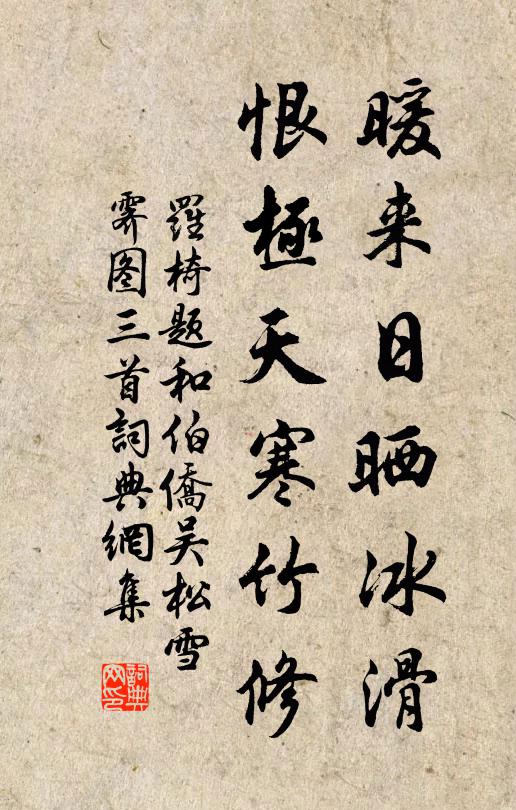 暖来日晒冰滑
恨極天寒竹修
羅椅题和伯僑吴松雪
霁图三首詞典網集
詞典網印